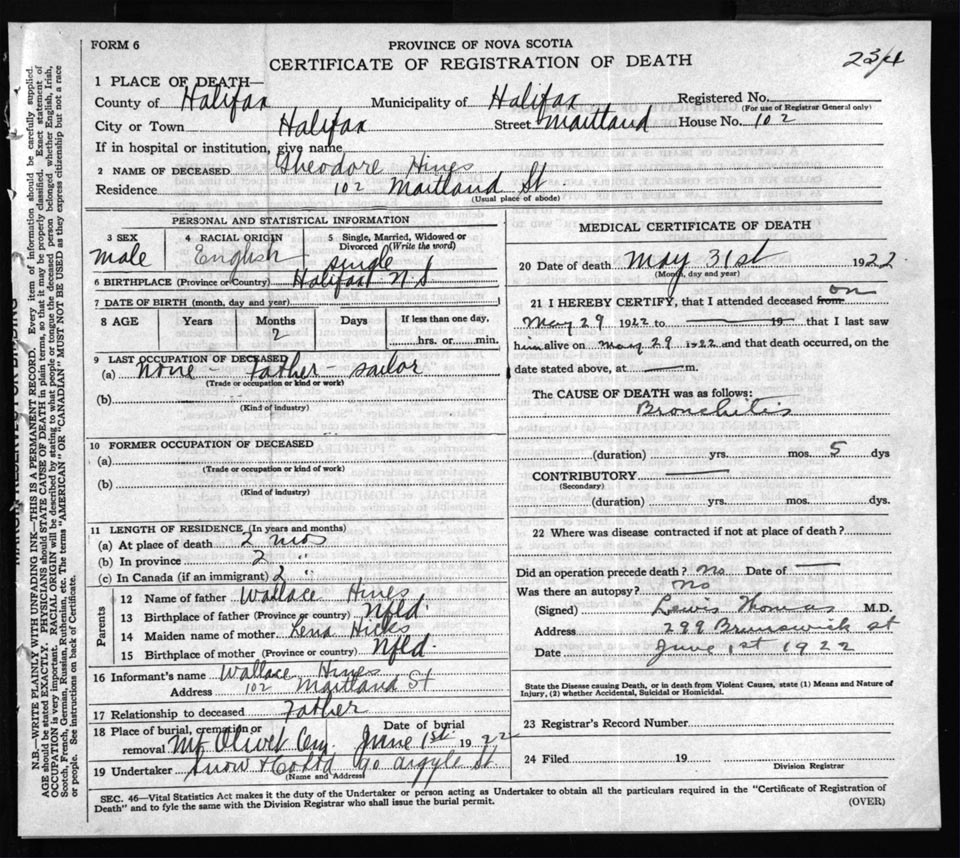 FORM 6
PROVINCE OF NOVA SCOTIA
CERTIFICATE OF REGISTRATION OF DEATH
23/4
1 PLACE OF DEATH—
County of Halifax Municipality of Halifax Registered No.
(For use of Registrar General only)
City or Town Halifax Street Maitland House No. 102
If in hospital or institution, give name
2 NAME OF DECEASED Theodore Hines
Residence 102 Maitland St
(Usual place of abode)
PERSONAL AND STATISTICAL INFORMATION
3 SEX
male
4 RACIAL ORIGIN
English
5 Single, Married, Widowed or Divorced (Write the word)
single
6 BIRTHPLACE (Province or Country) Halifax N.S
7 DATE OF BIRTH (month, day and year)
8 AGE Years Months Days If less than one day,
2 hrs. or min.
9 LAST OCCUPATION OF DECEASED
(a) None - Father - sailor
(Trade or occupation or kind or work)
(b)
(Kind of industry)
10 FORMER OCCUPATION OF DECEASED
(a)
(Trade or occupation or kind of work)
(b)
(Kind of industry)
11 LENGTH OF RESIDENCE (In years and months)
(a) At place of death 2 mos
(b) In province 2 "
(c) In Canada (if an immigrant) 2 "
Parents
12 Name of father Wallace Hines
13 Birthplace of father (Province or country) Nfld.
14 Maiden name of mother Lena Hicks
15 Birthplace of mother (Province or country) Nfld.
16 Informant's name Wallace Hines
Address 102 Maitland St
17 Relationship to deceased Father
18 Place of burial, cremation or removal Mt Olivet Cem. Date of burial June 1st 1922
19 Undertaker Snow & Co Ltd 90 Argyle St
(Name and Address)
MEDICAL CERTIFICATE OF DEATH
20 Date of death May 31st 1922
(Month, day and year)
21 I HEREBY CERTIFY, that I attended deceased from on
May 29 1922 to — 19 — that I last saw
him alive on May 29 1922 and that death occurred, on the
date stated above, at — m.
The CAUSE OF DEATH was as follows:
Bronchitis
(duration) yrs. mos. 5 dys
CONTRIBUTORY —
(Secondary)
(duration) yrs. mos. dys.
22 Where was disease contracted if not at place of death?
Did an operation precede death? No Date of —
Was there an autopsy? No
(Signed) Lewis Thomas M.D.
Address 299 Brunswick st
Date June 1st 1922
State the Disease causing Death, or in death from Violent Causes, state (1) Means and Nature of Injury, (2) whether Accidental, Suicidal or Homicidal.
23 Registrar's Record Number
24 Filed 19
Division Registrar
SEC. 46—Vital Statistics Act makes it the duty of the Undertaker or person acting as Undertaker to obtain all the particulars required in the "Certificate of Registration of
Death" and to fyle the same with the Division Registrar who shall issue the burial permit.
(OVER)
MARGIN RESERVED FOR BINDING
N.B.—WRITE PLAINLY WITH UNFADING INK—THIS IS A PERMANENT RECORD. Every item of information should be carefully supplied.
AGE should be stated EXACTLY. PHYSICIANS should STATE CAUSE OF DEATH in plain terms, so that it may be properly classified. Exact statement of
OCCUPATION is very important. RACIAL ORIGIN will be described by stating to what people or tongue the deceased person belonged whether English, Irish,
Scotch, French, German, Russian, Ruthenian, etc. The terms "AMERICAN" OR "CANADIAN" MUST NOT BE USED as they express citizenship but not a race
or people. See instructions on back of Certificate.